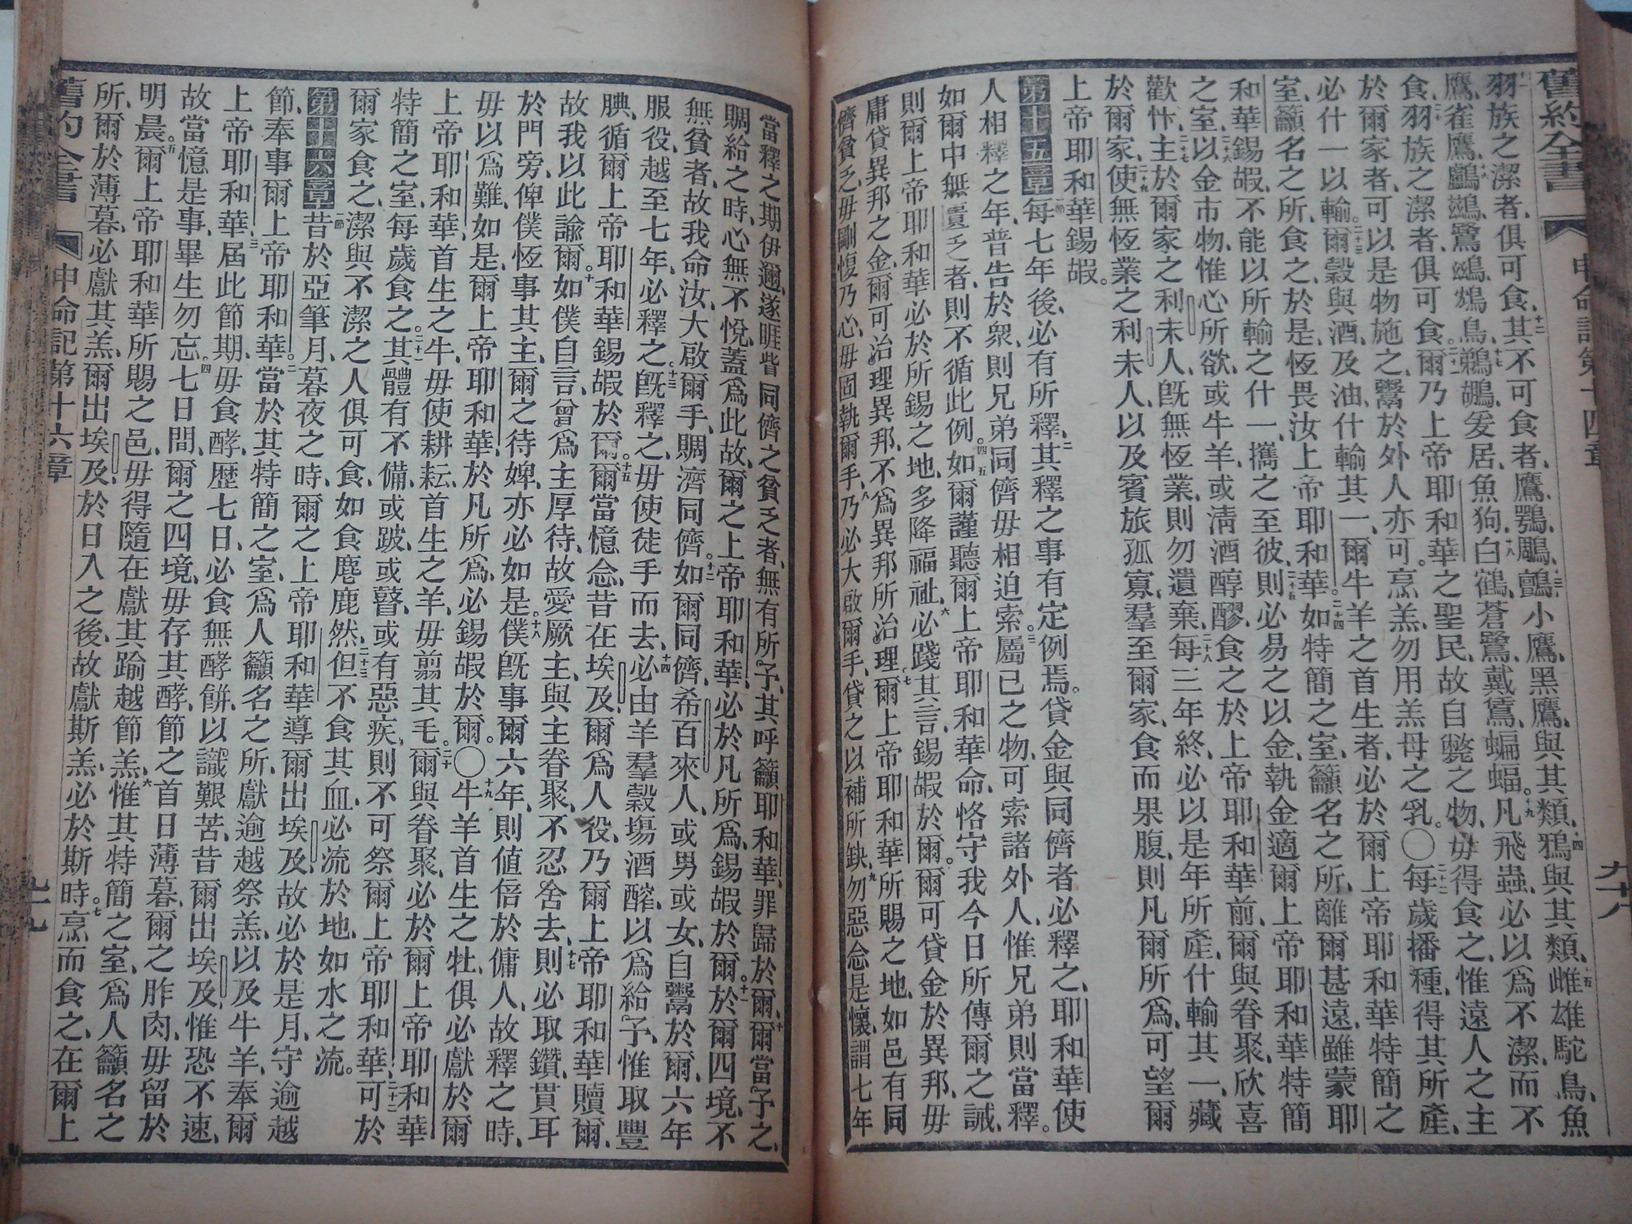 舊約全書 申命記第十四章 九十八
羽族之潔者、俱可食、其不可食者、鷹、鶚、鵰、鸇、小鷹、黑鷹、與其類、鴉與其類、雌雄駝鳥、魚
鷹、雀鷹、鸕鷀、鷺、鴟、鳥、鵜鶘、爰居、魚狗、白鶴、蒼鷺、戴鵀、蝙蝠、凡飛蟲、必以爲不潔、而不
食、羽族之潔者、俱可食、爾乃上帝耶和華之聖民、故自斃之物、毋得食之、惟遠人之主
於爾家者、可以是物施之、鬻於外人亦可、烹羔、勿用羔母之乳。〇每歲播種、得其所產、
必什一以輸、爾穀與酒、及油、什輸其一、爾牛羊之首生者、必於爾上帝耶和華特簡之
室、籲名之所、食之、於是恆畏汝上帝耶和華。如特簡之室、籲名之所、離爾甚遠、雖蒙耶
和華錫嘏、不能以所輸之什一、攜之至彼、則必易之以金、執金適爾上帝耶和華特簡
之室、以金市物、惟心所欲、或牛羊、或清酒醇醪、食之於上帝耶和華前、爾與眷聚、欣喜
歡忭、主於爾家之利未人、既無恆業、則勿遺棄、每三年終、必以是年所產、什輸其一、藏
於爾家、使無恆業之利未人、以及賓旅孤寡、羣至爾家、食而果腹、則凡爾所爲、可望爾
上帝耶和華錫嘏。
第十五章 每七年後、必有所釋、其釋之事有定例焉。貸金與同儕者必釋之、耶和華使
人相釋之年、普告於衆、則兄弟同儕毋相迫索、屬已之物、可索諸外人、惟兄弟則當釋。
如爾中無匱乏者、則不循此例。如爾謹聽爾上帝耶和華命、恪守我今日所傳爾之誡、
則爾上帝耶和華、必於所錫之地、多降福祉、必踐其言、錫嘏於爾。爾可貸金於異邦、毋
庸貸異邦之金、爾可治理異邦、不爲異邦所治理、爾上帝耶和華所賜之地、如邑有同
儕貧乏、毋剛愎乃心、毋固執爾手、乃必大啟爾手、貸之以補所缺、勿惡念是懷、謂七年
當釋之期伊邇、遂睚眥同儕之貧乏者、無有所予、其呼籲耶和華、罪歸於爾、爾當予之、
賙給之時、心無不悅、蓋爲此故、爾之上帝耶和華、必於凡所爲、錫嘏於爾。於爾四境、不
無貧者、故我命汝、大啟爾手、賙濟同儕。如爾同儕希百來人、或男或女、自鬻於爾、六年
服役、越至七年、必釋之。既釋之、毋使徒手而去、必由羊羣穀塲酒醡、以爲給予、惟取豐
腆、循爾上帝耶和華錫嘏於爾。爾當憶念、昔在埃及、爾爲人役、乃爾上帝耶和華贖爾、
故我以此諭爾。如僕自言、曾爲主厚待、故愛厥主、與主眷聚、不忍舍去、則必取鑽貫耳
於門旁、俾僕恆事其主、爾之待婢、亦必如是、僕既事爾六年、則値倍於傭人、故釋之時、
毋以爲難、如是、爾上帝耶和華、於凡所爲、必錫嘏於爾。〇牛羊首生之牡、俱必獻於爾
上帝耶和華、首生之牛、毋使耕耘、首生之羊、毋翦其毛。爾與眷聚、必於爾上帝耶和華
特簡之室、每歲食之、其體有不備、或跛、或瞽、或有惡疾、則不可祭爾上帝耶和華、可於
爾家食之、潔與不潔之人俱可食、如食麀鹿然、但不食其血、必流於地、如水之流。
第十六章 昔於亞筆月、暮夜之時、爾之上帝耶和華導爾出埃及、故必於是月、守逾越
節、奉事爾上帝耶和華。當於其特簡之室、爲人籲名之所、獻逾越祭羔、以及牛羊、奉爾
上帝耶和華、屆此節期、毋食酵、歷七日、必食無酵餅、以識艱苦、昔爾出埃及、惟恐不速、
故當憶是事、畢生勿忘。七日間、爾之四境、毋存其酵、節之首日薄暮、爾之胙肉、毋留於
明晨。爾上帝耶和華所賜之邑、毋得隨在獻其踰越節羔、惟其特簡之室、爲人籲名之
所、爾於薄暮、必獻其羔、爾出埃及、於日入之後、故獻斯羔、必於斯時。烹而食之、在爾上
舊約全書 申命記第十六章 九十九